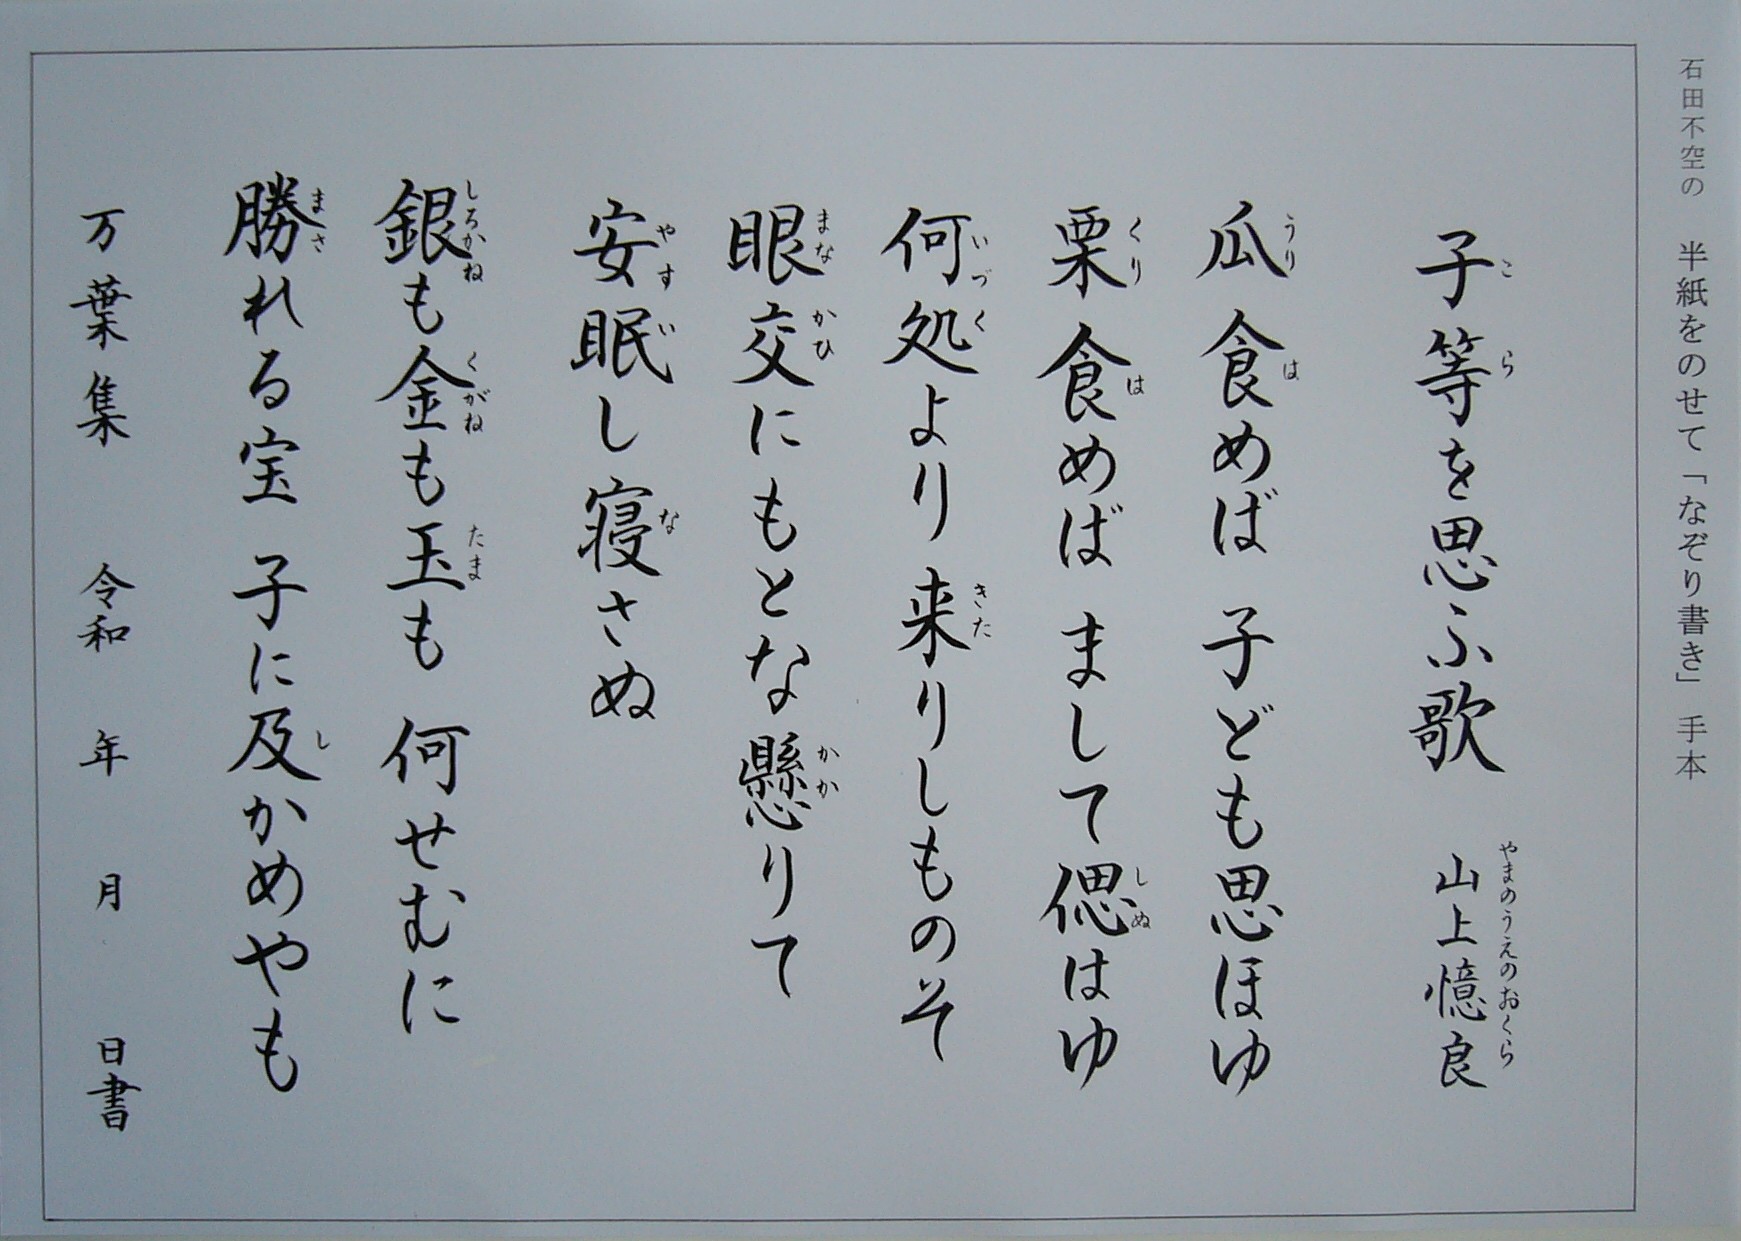 石田不空の 半紙をのせて「なぞり書き」 手本
子等を思ふ歌 山上憶良
こ ら やまのうえのおくら
瓜食めば 子ども思ほゆ
うり は
栗食めば まして偲はゆ
くり は しぬ
何処より 来りしものそ
いづく きた
眼交にもとな懸りて
まな かひ かか
安眠し寝さぬ
やす い な
銀も金も玉も 何せむに
しろかね くがね たま
勝れる宝 子に及かめやも
まさ し
万葉集 令和 年 月 日書